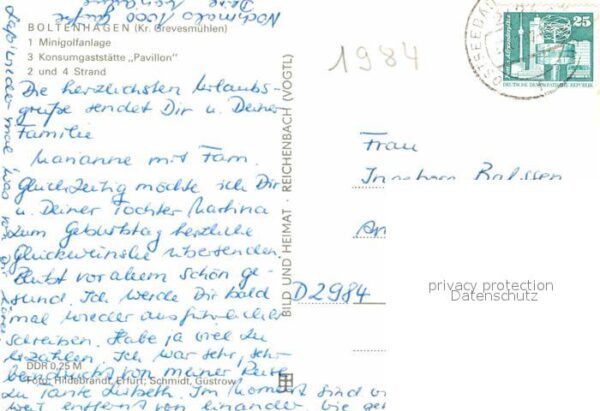 BOLTENHAGEN (Kr. Grevesmühlen)
1 Minigolfanlage
3 Konsumgaststätte „Pavillon"
2 und 4 Strand
Die herzlichsten Urlaubs-
grüße sendet Dir u. Deiner
Familie
Marianne mit Fam.
Gleichzeitig möchte ich Dir
u. Deiner Tochter Martina
zum Geburtstag herzliche
Glückwünsche übersenden.
Bleibt vor allem schön ge-
sund. Ich werde Dir bald
mal wieder ausführlicher
schreiben. Habe ja viel zu
erzählen. Ich war sehr, sehr
beeindruckt von meiner Reise
zu Tante Lisbeth. Im Moment sind
weit entfernt von einander
Nochmals 1000 Grüße
DDR 0,25 M
Foto: Hildebrandt, Erfurt; Schmidt, Güstrow
BILD UND HEIMAT · REICHENBACH (VOGTL)
1984
OSTSEEBAD
25
DEUTSCHE DEMOKRATISCHE REPUBLIK
Frau
An
D2984
privacy protection
Datenschutz